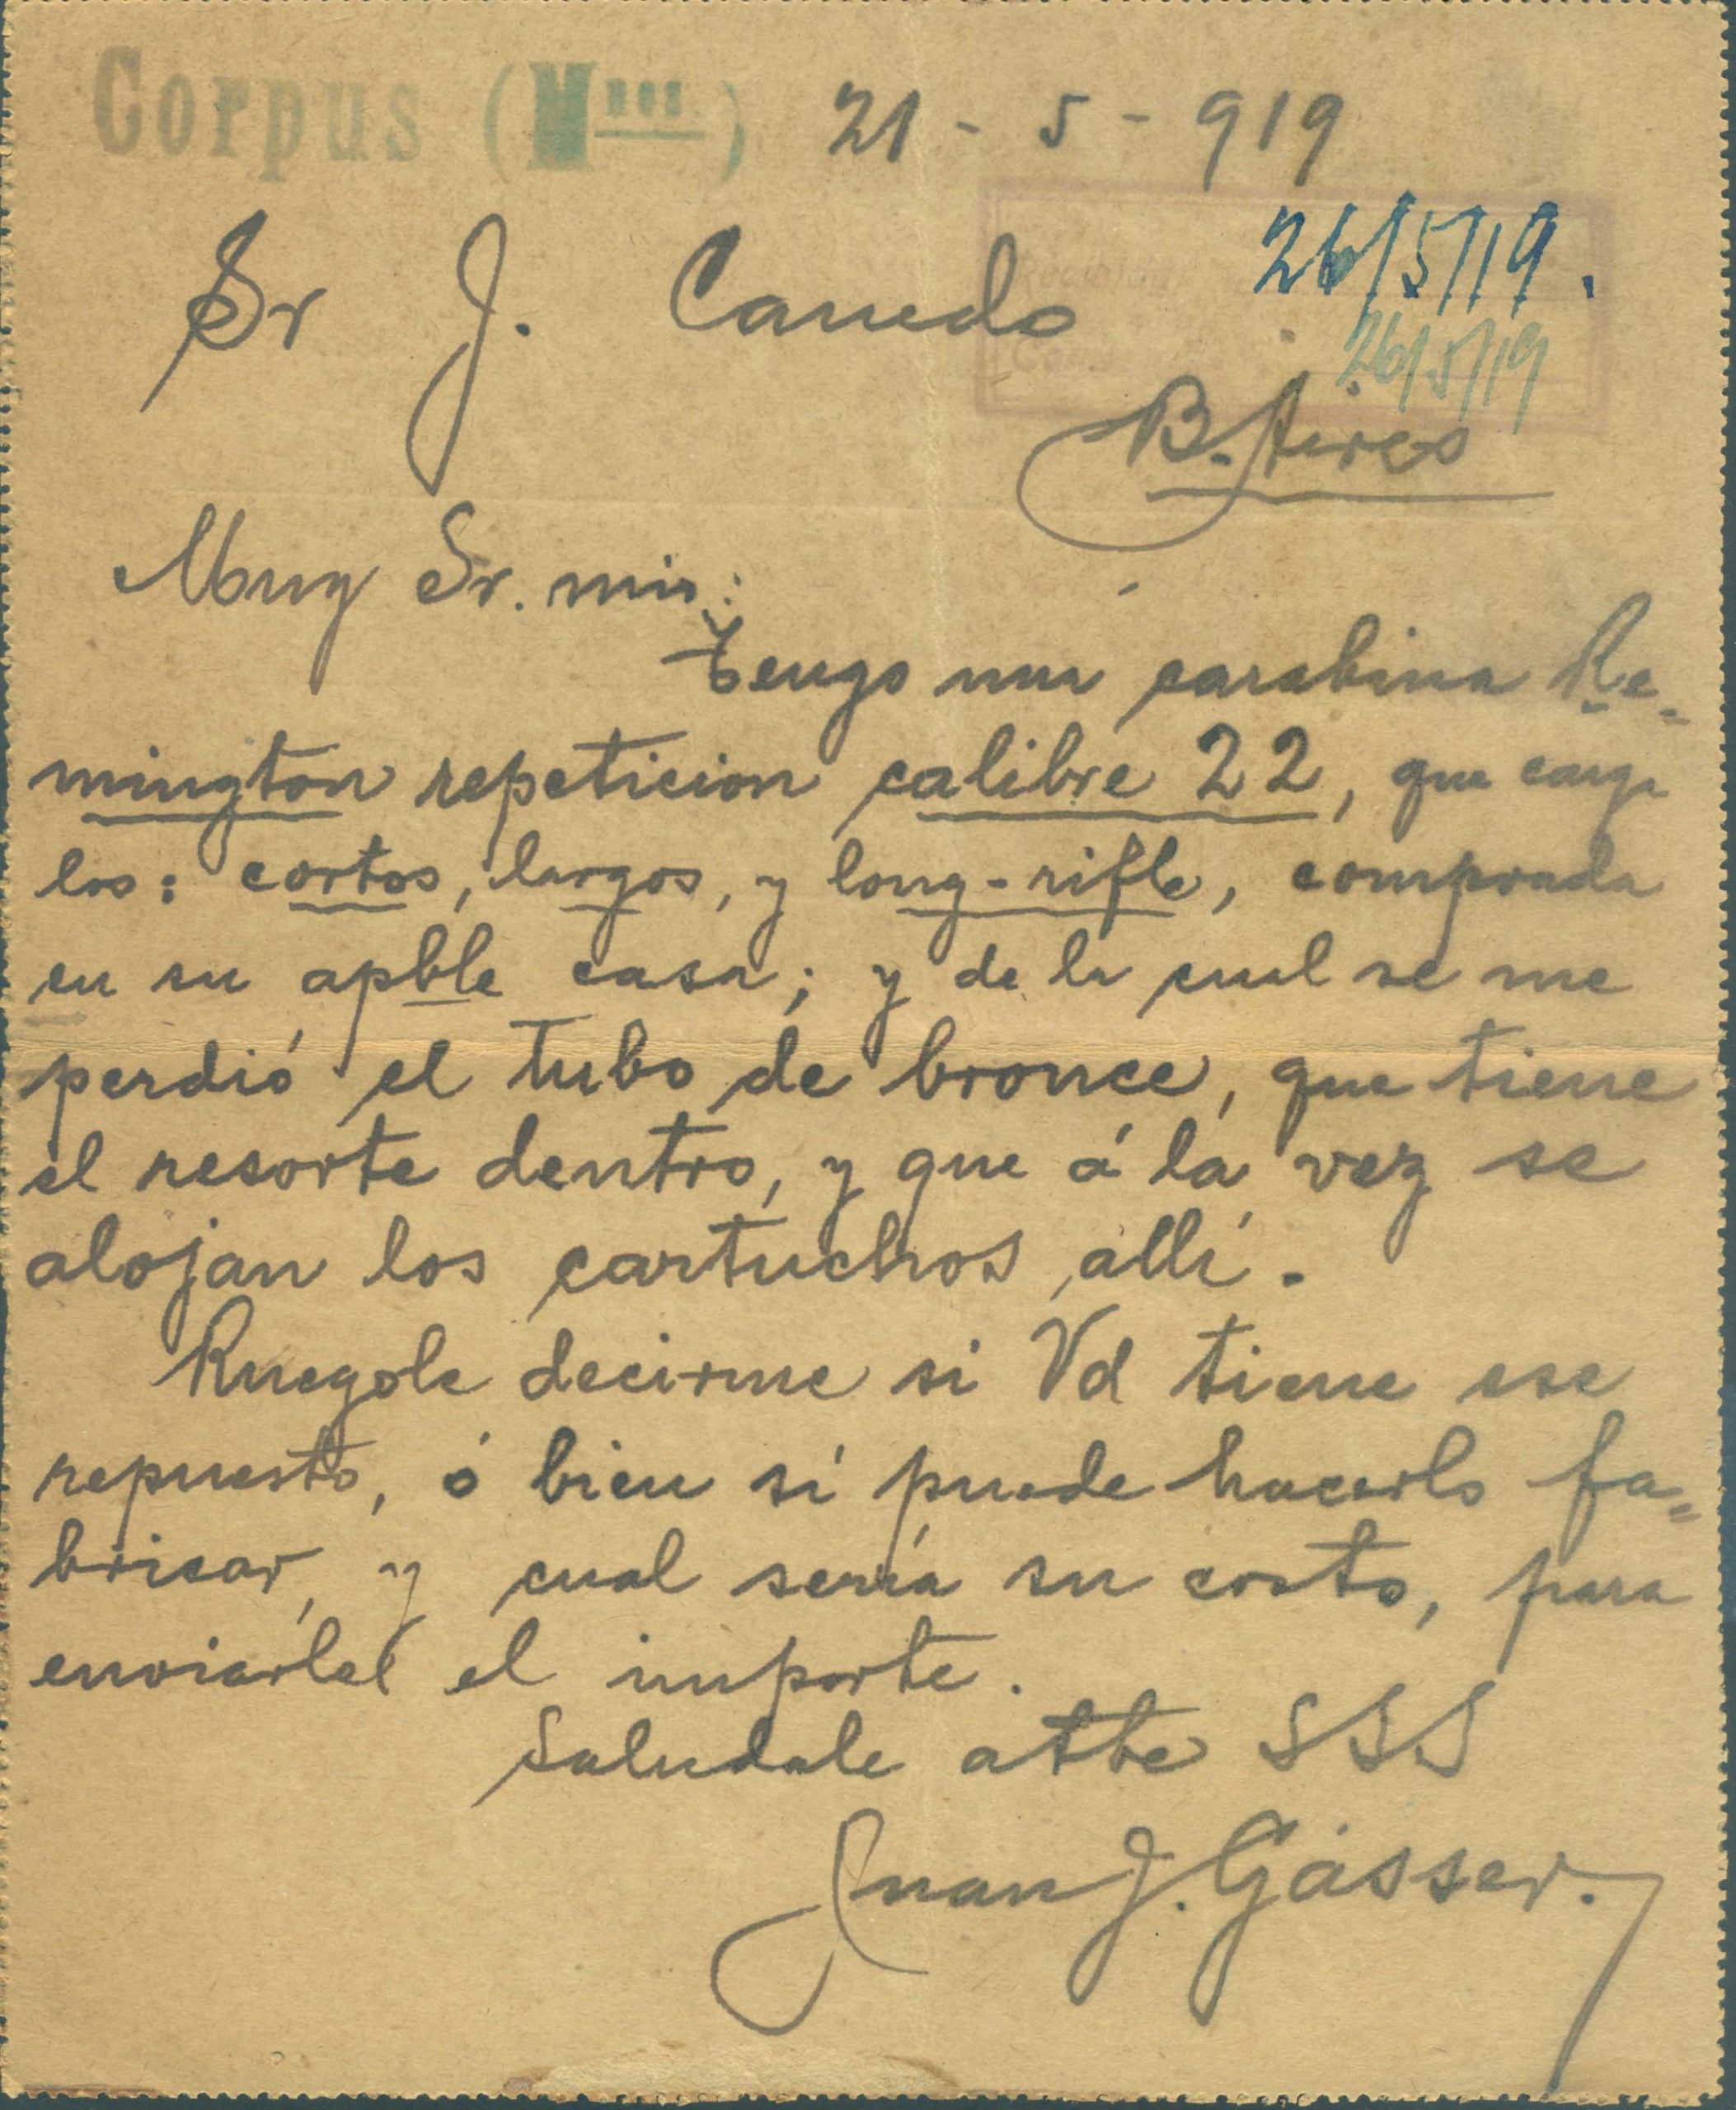 Corpus (Mnes) 21 - 5 - 919
26/5/19.
Sr J. Canedo
26/5/19
B. Aires
Muy Sr. mio:
Tengo una carabina Re=
mington repeticion calibre 22, que carga
los: cortos, largos, y long-rifle, comprada
en su apble casa; y de la cual se me
perdió el tubo de bronce, que tiene
el resorte dentro, y que á la vez se
alojan los cartuchos allí.
Ruegole decirme si Vd tiene ese
repuesto, ó bien si puede hacerlo fa=
bricar, y cual sería su costo, para
enviarle el importe.
Saludale atte SSS
Juan J. Gásser.